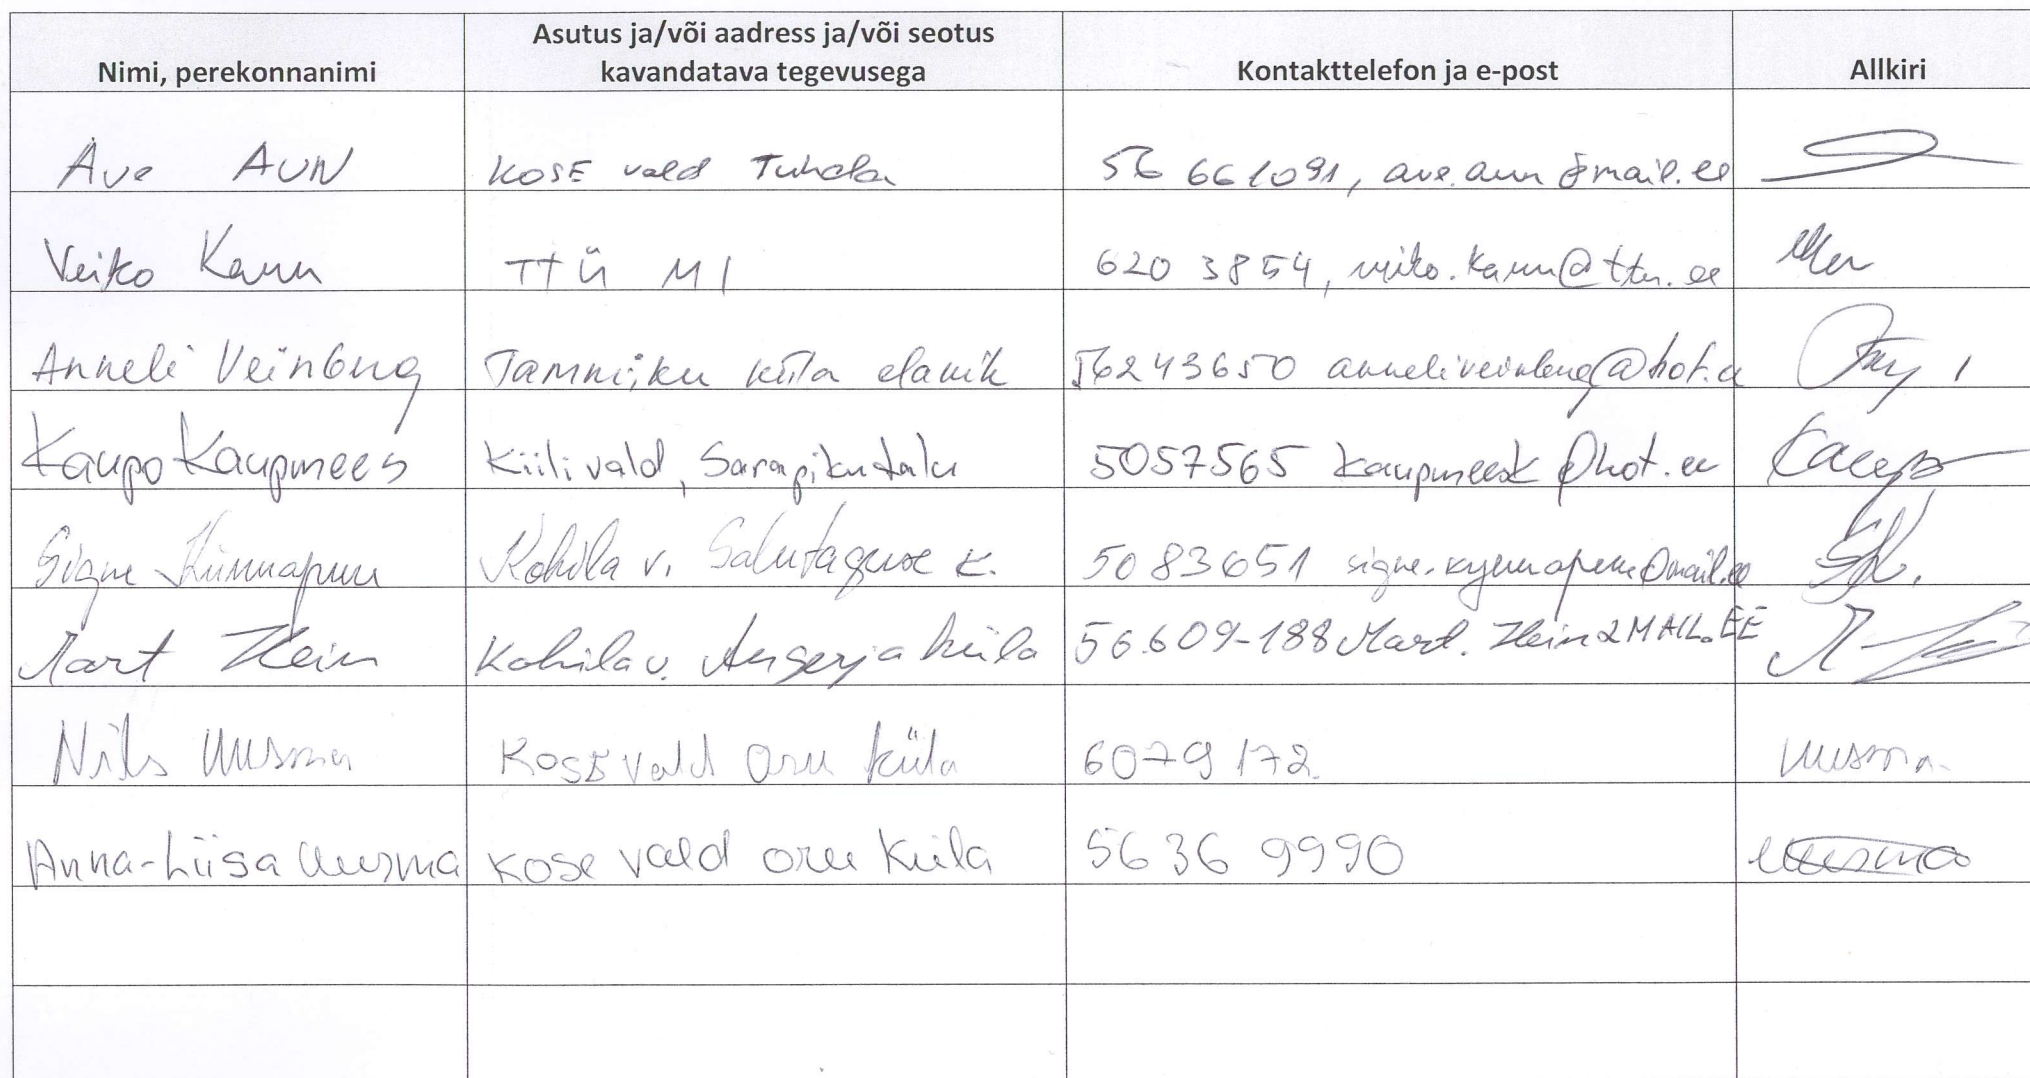 Asutus ja/või aadress ja/või seotus
Nimi, perekonnanimi kavandatava tegevusega Kontakttelefon ja e-post Allkiri
Ave AUN KOSE vald Tuhala 56 661091, ave.aun@mail.ee
Veiko Karu TTÜ MI 620 3854, veiko.karu@ttu.ee
Anneli Veinberg Tammiku küla elanik 56243650 anneliveinberg@hot.ee
Kaupo Kaupmees Kiili vald, Sarapiku talu 5057565 kaupmeesk@hot.ee Kaupo
Signe Künnapuu Kohila v. Salutaguse k. 5083651 signe.kyunnapuu@mail.ee
Mart Hein Kohila v. Angerja küla 56.609-188 Mart.Hein@MAIL.EE
Nils Uusma KOSE vald Oru küla 6079172 Uusma
Anna-Liisa Uusma KOSE vald oru küla 5636 9990 Uusma